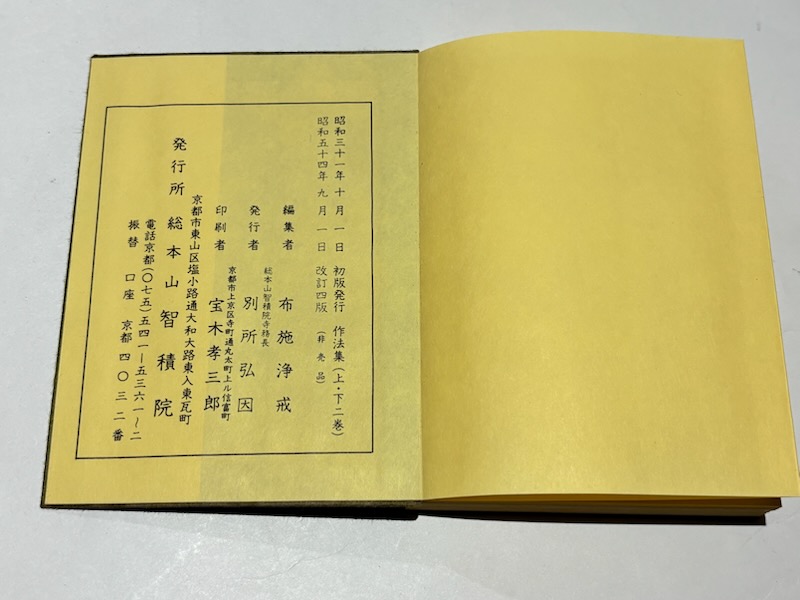 昭和三十一年十月一日 初版発行 作法集(上・下二巻)
昭和五十四年九月一日 改訂四版 (非売品)
編集者 布施浄戒
総本山智積院寺務長
発行者 別所弘因
京都市上京区寺町通丸太町上ル信富町
印刷者 宝木孝三郎
京都市東山区塩小路通大和大路東入東瓦町
発行所 総本山智積院
電話京都(〇七五)五四一―五三六一~二
振替口座 京都四〇三二番